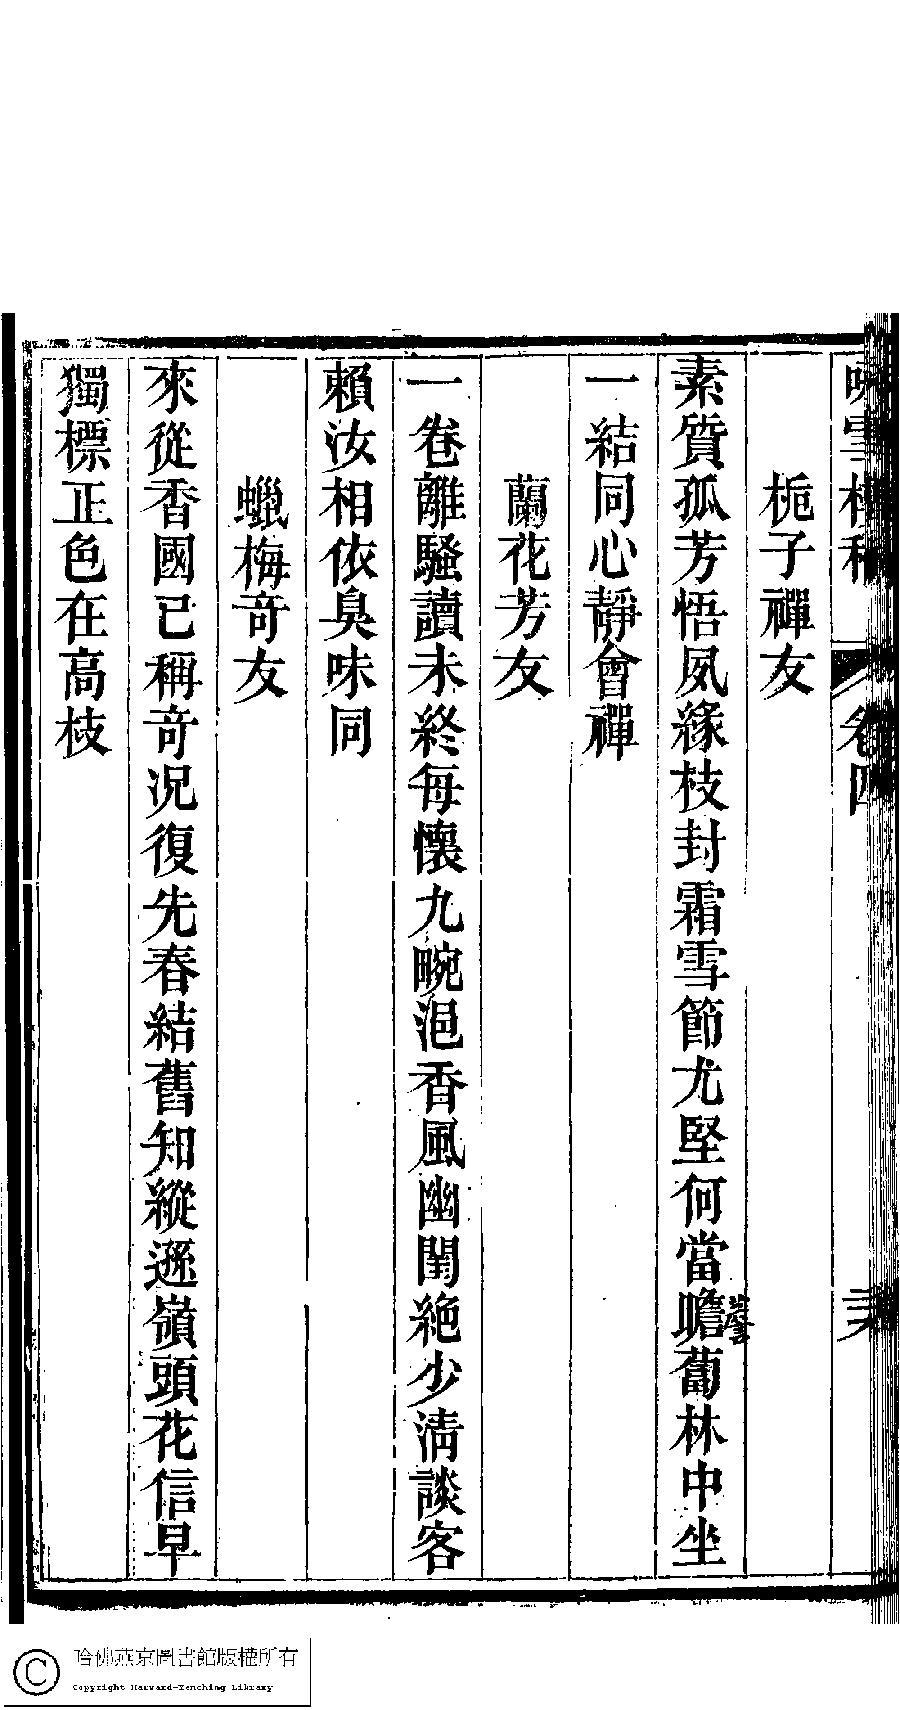 卷四
栀子禪友
素質孤芳悟夙緣枝封霜雪節尤堅何當瞻蔔林中坐
一結同心靜會禪
蘭花芳友
一卷離騷讀未終每懷九畹浥香風幽閨絶少清談客
賴汝相依臭味同
蠟梅竒友
來從香國已稱竒况復先春結舊知縱遜嶺頭花信早
獨標正色在高枝
哈佛燕京圖書館版權所有
Copyright Harvard-Yenching Library